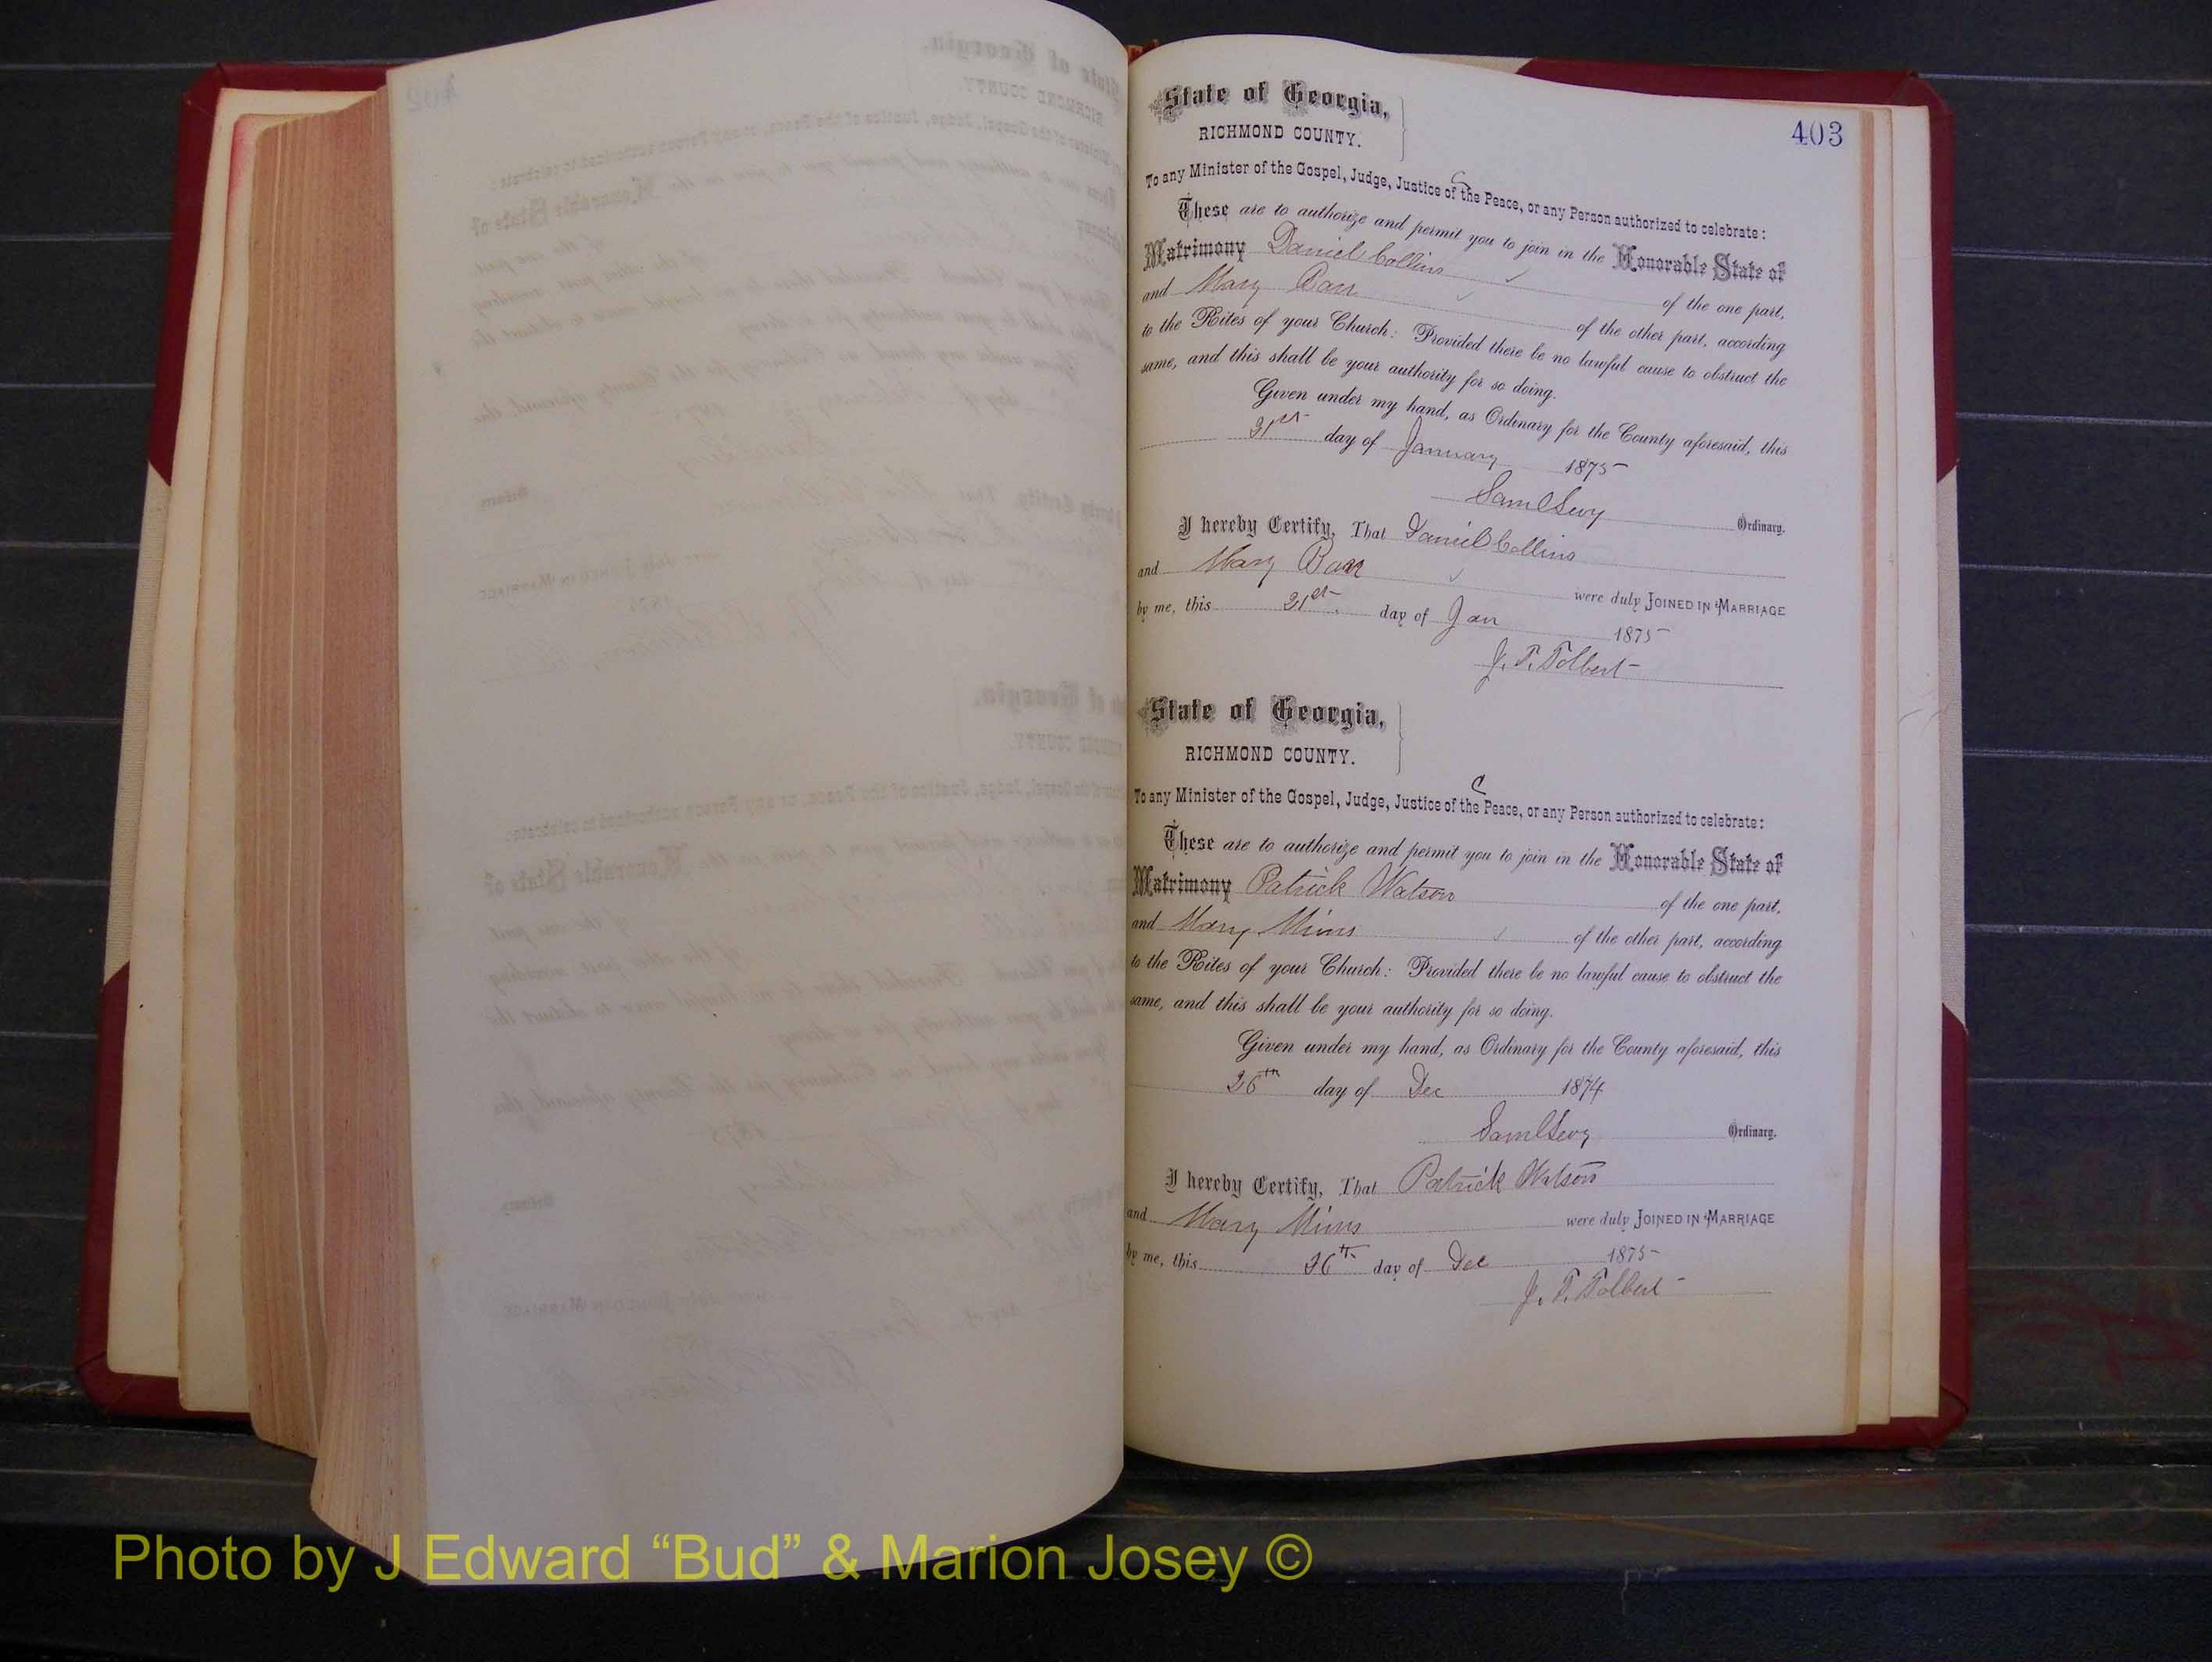 403
State of Georgia,
RICHMOND COUNTY.
C
To any Minister of the Gospel, Judge, Justice of the Peace, or any Person authorized to celebrate:
These are to authorize and permit you to join in the Honorable State of
Matrimony Daniel Collins of the one part,
and Mary Barr of the other part, according
to the Rites of your Church: Provided there be no lawful cause to obstruct the
same, and this shall be your authority for so doing.
Given under my hand, as Ordinary for the County aforesaid, this
21st day of January 1875
Saml Levy Ordinary.
I hereby Certify, That Daniel Collins
and Mary Barr were duly JOINED IN MARRIAGE
by me, this 21st. day of Jan 1875
J. T. Tolbert
State of Georgia,
RICHMOND COUNTY.
C
To any Minister of the Gospel, Judge, Justice of the Peace, or any Person authorized to celebrate:
These are to authorize and permit you to join in the Honorable State of
Matrimony Patrick Watson of the one part,
and Mary Mims of the other part, according
to the Rites of your Church: Provided there be no lawful cause to obstruct the
same, and this shall be your authority for so doing.
Given under my hand, as Ordinary for the County aforesaid, this
26th day of Dec 1874
Saml Levy Ordinary.
I hereby Certify, That Patrick Watson
and Mary Mims were duly JOINED IN MARRIAGE
by me, this 26th day of Dec 1875
J. T. Tolbert
Photo by J Edward “Bud” & Marion Josey ©